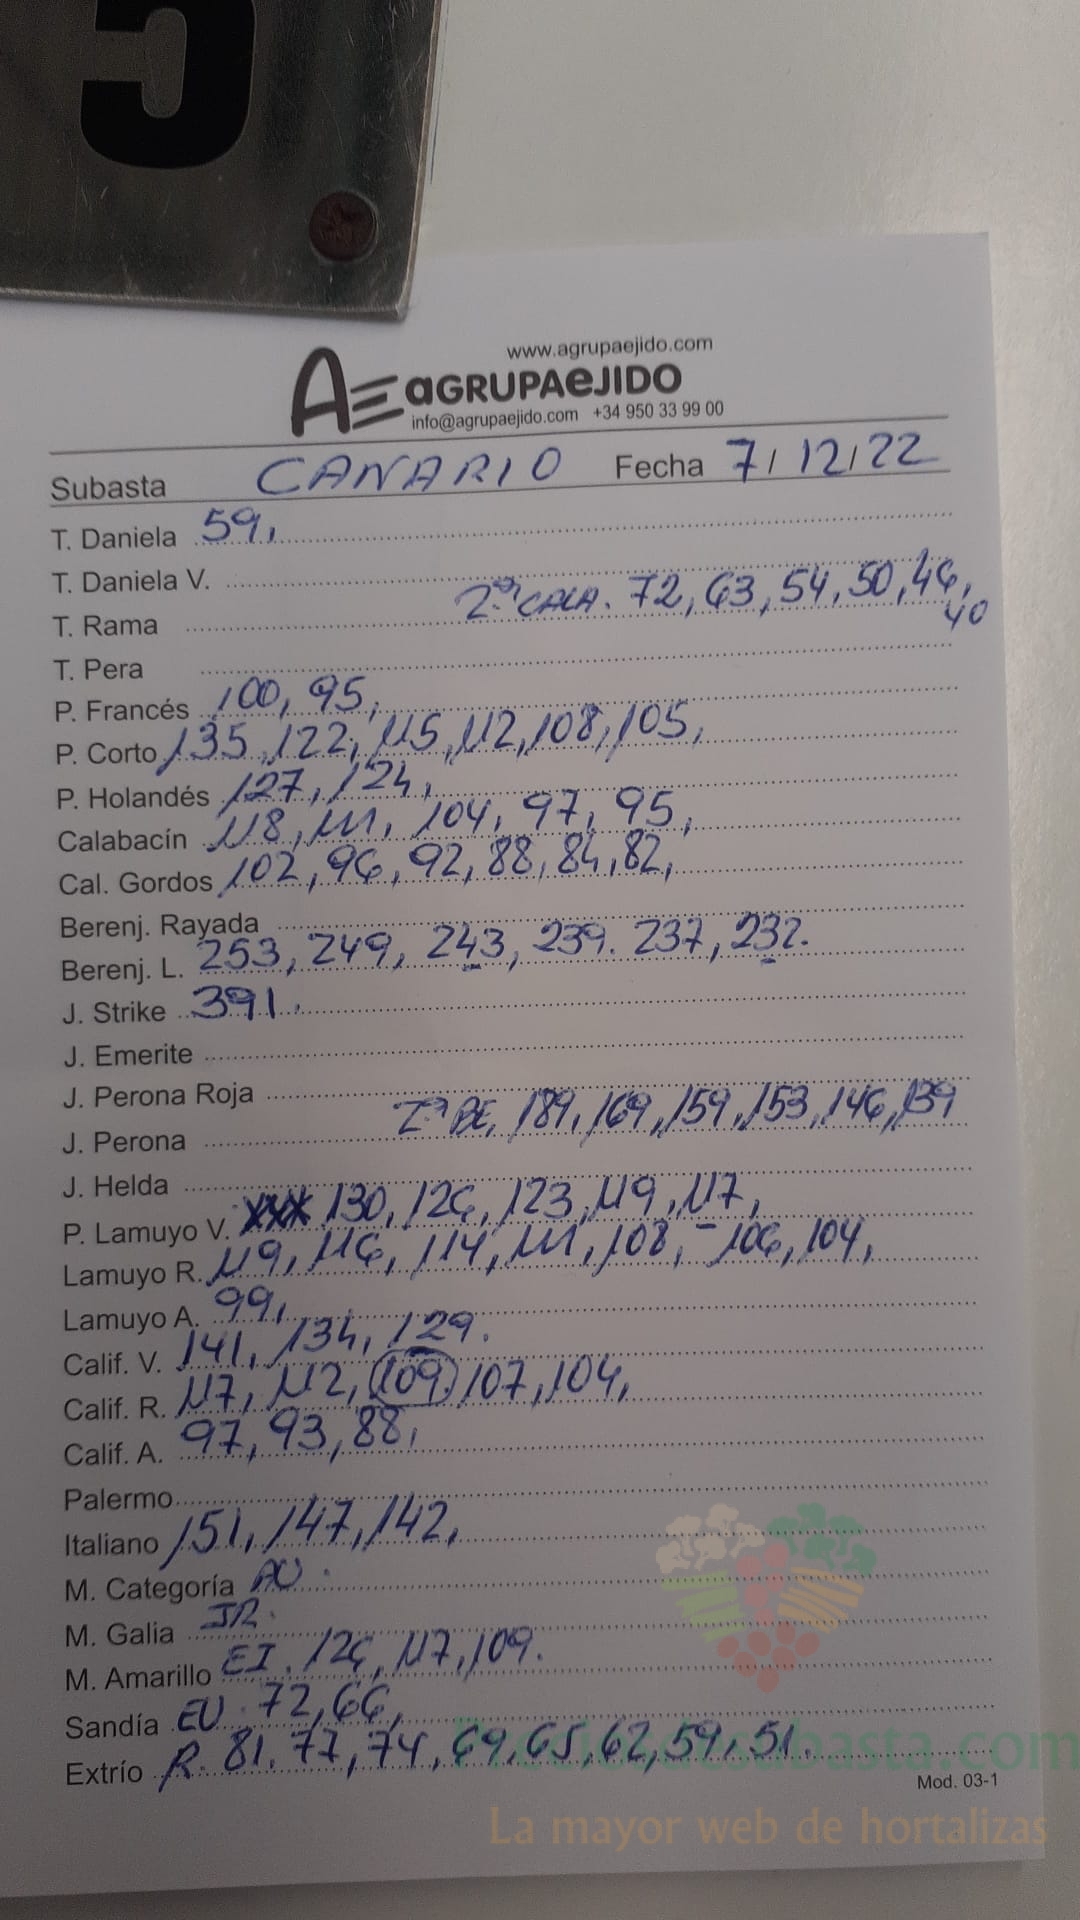 5
www.agrupaejido.com
AE aGRUPAeJIDO
info@agrupaejido.com +34 950 33 99 00
Subasta CANARIO Fecha 7/12/22
T. Daniela 59,
T. Daniela V.
2ª CALA. 72, 63, 54, 50, 46,
T. Rama 40
T. Pera
P. Francés 100, 95,
P. Corto 135, 122, 115, 112, 108, 105,
P. Holandés 127, 124,
Calabacín 118, 111, 104, 97, 95,
Cal. Gordos 102, 96, 92, 88, 84, 82,
Berenj. Rayada
Berenj. L. 253, 249, 243, 239. 237, 232.
J. Strike 391.
J. Emerite
J. Perona Roja
J. Perona 2ª BE, 189, 169, 159, 153, 146, 139
J. Helda
P. Lamuyo V. XXX 130, 126, 123, 119, 117,
Lamuyo R. 119, 116, 114, 111, 108, - 106, 104,
Lamuyo A. 99,
Calif. V. 141, 134, 129.
Calif. R. 117, 112, 109. 107, 104,
Calif. A. 97, 93, 88,
Palermo
Italiano 151, 147, 142,
M. Categoría AU.
M. Galia JR.
M. Amarillo EI. 126, 117, 109.
Sandía EU. 72, 66,
Extrío R. 81, 77, 74, 69, 65, 62, 59, 51.
Mod. 03-1
La mayor web de hortalizas